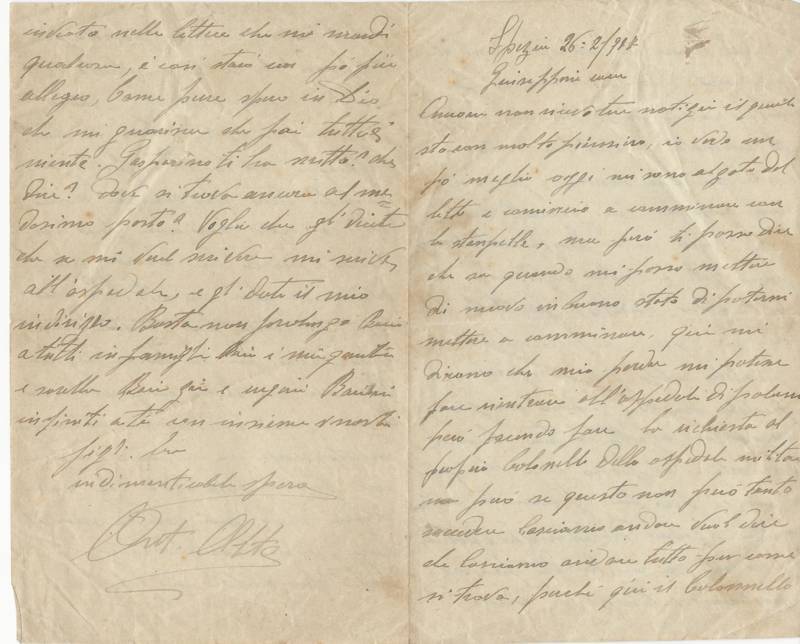 Spezia 26=2/918
Giuseppina cara
Ancora non ricevo tue notizie il quale
sto con molto pensiero, io vado un
pó meglio oggi mi sono alzato dal
letto e comincio a camminare con
le stampelle, ma peró ti posso dire
che sa quando mi posso mettere
di nuovo in buono stato di potermi
mettere a camminare, qui mi
dicono che mio padre mi potene
fare rientrare all'ospedale di
peró facendo fare la richiesta al
proprio Colonnello dello ospedale militare
ma peró se questo non peró tanto
succedere lasciamo andare vuol dire
che lasciamo andare tutto per come
si trova, perché qui il Colonnello
nella lettere che mi mandi
qualcosa, e cosi staró un pó piú
allegro, Come pure spero in Dio
che mi guarisce che poi tutto é
niente. Gasparino ti ha scritto? che
dice? dove si trova ancora al me=
desimo posto? Voglio che gli dicete
che se mi vuol scrivere mi scrive
all'ospedale, e gli date il mio
indirizzo. Basta non prolungo Baci
a tutti in famiglia Baci i miei genitori
e sorelle Baci zii e cugini Bacioni
infiniti a te con insieme i nostri
figli. tuo
indimenticabile sposo